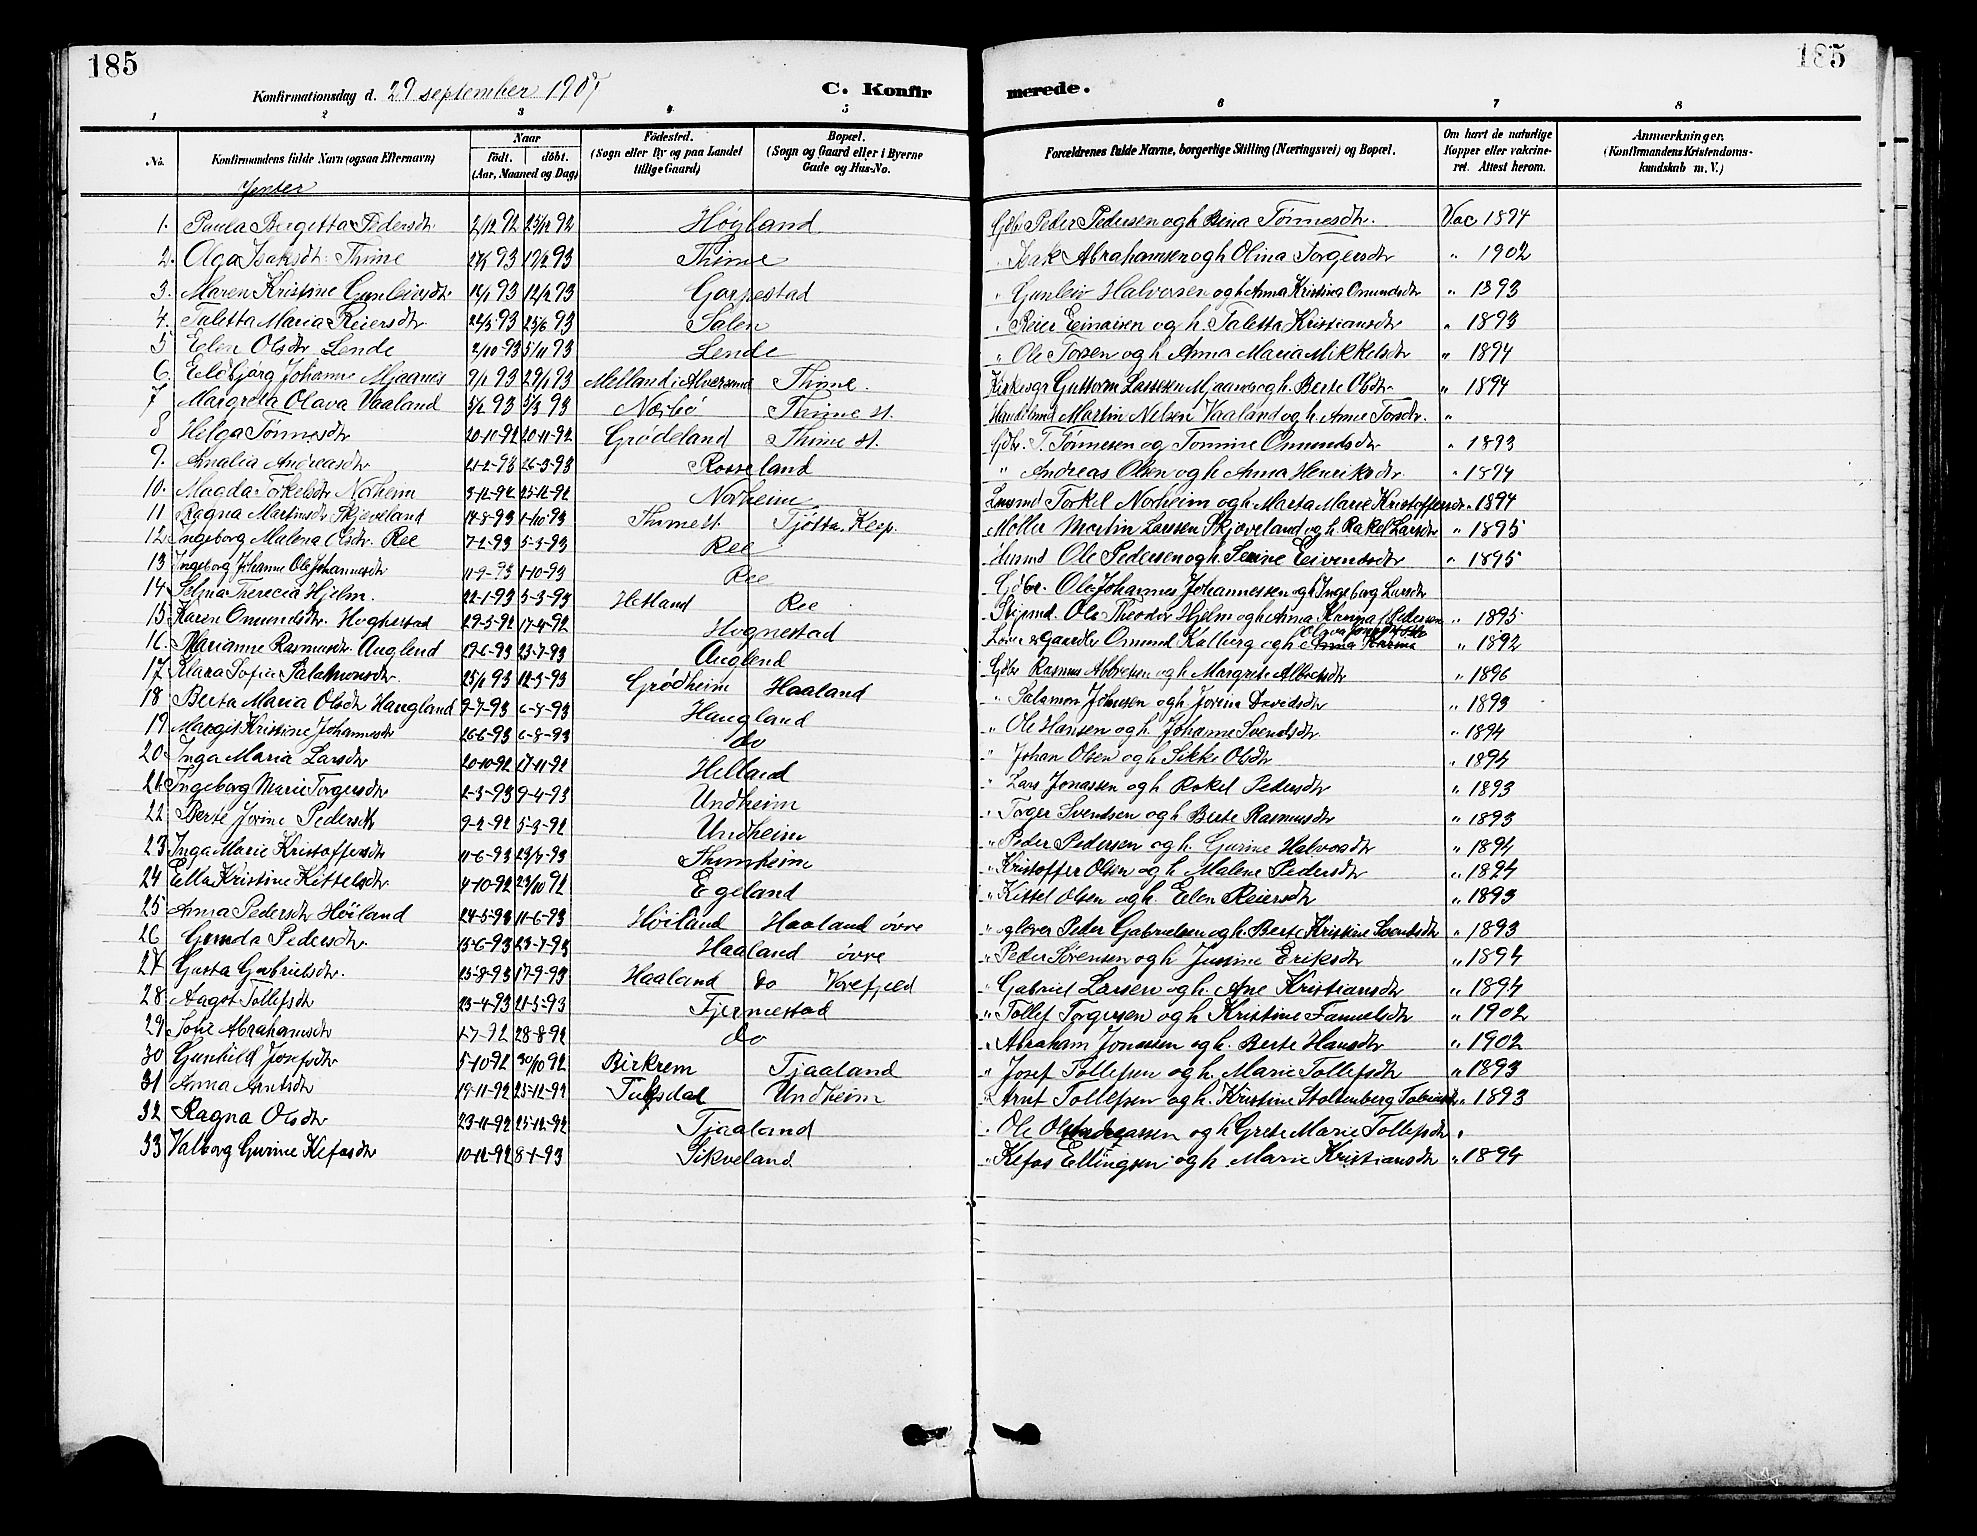 185
185
Konfirmationsdag d. 29 september 1907
C. Konfirmerede.
1 2 3 4 5 6 7 8
No. Konfirmandens fulde Navn (ogsaa Efternavn) Naar født. døbt. (Aar, Maaned og Dag) Fødested. (Sogn eller By og paa Landet tillige Gaard) Bopæl. (Sogn og Gaard eller i Byerne Gade og Hus-No. Forældrenes fulde Navne, borgerlige Stilling (Næringsvei) og Bopæl. Om havt de naturlige Kopper eller vakcineret. Attest herom. Anmærkninger. (Konfirmandens Kristendomskundskab m. V.)
Jenter
1. Paula Bergitta Pedersdtr 2/12 92 25/12 92 Høyland Gdbr Peder Pedersen og h Bina Tønnesdtr. Vac 1894
2. Olga Isaksdtr. Thime 93 93 Thime " Isak Abrahamsen og h Olina Torgersdtr " 1902
3. Maren Kristine Gunleivsdtr 93 12/2 93 Garpestad " Gunleiv Halvorsen og h Anna Kristina Omundsdtr " 1893
4. Taletta Maria Reiersdtr. 93 25/6 93 Salen " Reier Einarsen og h. Taletta Kristiansdtr " 1893
5 Elen Olsdtr Lende 2/10-93 5/11 93 Lende " Ole Torsen og h Anna Maria Mikkelsdtr " 1894
6. Eldbjørg Johanne Mjaanes 9/1 93 29/1 93 Melland i Alversund Thime. Kirkesgr Guttorm Larssen Mjaanes og h. Berte Olsdtr. " 1894
7 Margreta Olava Vaaland 5/2 93 5/3 93 Nærbø Thime st. Handelsmd Martin Nelsen Vaaland og h. Anne Torsdtr. "
8 Helga Tønnesdtr 20-11-92 20-11-92 Grødeland Thime st. Gdbr. T. Tønnesen og Tonnine Omundsdtr " 1893
9. Amalia Andreasdtr 21-2-93 26-3-93 Rosseland " Andreas Olsen og h Anna Henriksdtr " 1894
10. Magda Torkelsdtr Norheim 3-12-92 25-12-92 Norheim Torkel Norheim og h Marta Marie Kristoffersdtr " 1894
11 Ragna Martinsdtr Skjæveland 14-8-93 1-10-93 Thime st. Tjøtta Klep. Møller Martin Larssen Skjæveland og h Rakel Larsdtr " 1895
12 Ingeborg Malena Olsdtr. Ree 7-2-93 5-3-93 Ree Husmd Ole Pedersen og h Serine Eivendsdtr " 1895
13 Ingeborg Johanne Ole Johannesdtr 11-9-93 1-10-93 Ree Gdbr. Ole Johannes Johannessen og h Ingeborg Larsdtr
14 Selma Therecia Hjelm. 22-1-93 5-3-93 Hetland Ree Skipmd. Ole Theodor Hjelm og h Anna Hanna f. Pedersen " 1895
15 Karen Omundsdtr. Hognestad 29-3-92 17-4-92 Hognestad Omund Kalberg og h Anna Karina " 1892
16. Marianne Rasmusdtr Auglend 19-6-93 23-7-93 Auglend Gdbr Rasmus Albretsen og h Margrete Albretsdtr " 1896
17. Klara Sofie Salamonsdtr. 25/1 93 12-3-93 Grødheim Haaland " Salamon Johnsen og h Jorina Davidsdtr " 1893
18 Berta Maria Olsdtr Haugland 9-7-93 6-8-93 Haugland " Ole Hansen og h. Johanne Svendsdtr " 1894
19 Margit Kristine Johannesdtr 26-6-93 6-8-93 do " Johan Olsen og h Sikke Olsdtr " 1894
20 Inga Maria Larsdtr 20-10-92 27-11-92 Helland " Lars Jonassen og h Rakel Pedersdtr " 1893
21 Ingeborg Marie Torgersdtr 2-3-93 9-4-93 Undheim " Torger Svendsen og h Berte Rasmusdtr " 1893
22 Berte Jorine Pedersdtr 9-2-92 5-3-92 Undheim " Peder Pedersen og h. Gurine Halvorsdtr " 1894
23 Inga Marie Kristoffersdtr 11-6-93 23/7-93 Thunheim " Kristoffer Olsen og h Malene Pedersdtr " 1894
24 Ella Kristine Kittelsdtr 4-10-92 23/10 92 Egeland " Kittel Olsen og h. Elen Reiersdtr " 1893
25 Anna Pedersdtr Høiland 24-5-93 11-6-93 Høiland Haaland øvre " Peder Gabrielsen og h. Berte Kristine Svendsdtr " 1893
26 Gunda Pedersdtr. 13-6-93 23-7-93 Haaland øvre " Peder Sørensen og h Justine Eriksdtr " 1894
27 Gusta Gabrielsdtr. 25-8-93 17-9-93 Haaland do Vorefjeld " Gabriel Larsen og h. Ane Kristiansdtr " 1894
28 Aagot Tollefsdtr 23-4-93 21-5-93 Tjernestad " Tollef Torgersen og h Kristine Samuelsdtr " 1902
29 Sofie Abrahamsdtr 1-7-92 28-8-92 do " Abraham Jonassen og h. Berte Hansdtr " 1902
30 Gunhild Josefsdtr. 5-10-92 30/10 92 Birkrem Tjaaland " Josef Tollefsen og h. Marie Tollefsdtr " 1893
31 Anna Arntsdtr 19-11-92 25-12-92 Undheim Arnt Tollefsen og h. Kristine Stoltenberg " 1893
32 Ragna Olsdtr 23-11-92 25-12-92 Tjaaland " Ole og h Grete Marie Tollefsdtr "
33 Valborg Gurine Kefasdtr 10-12-92 8-1-93 Sikveland " Kefas Ellingsen og h. Marie Kristiansdtr " 1894